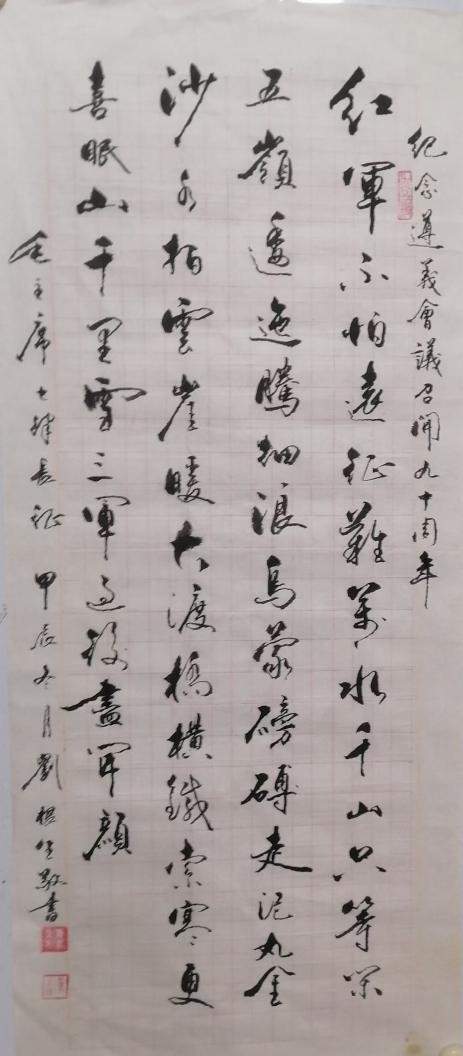 紀念遵義會議召開九十周年
紅軍不怕遠征難萬水千山只等閑
五嶺逶迤騰細浪烏蒙磅礴走泥丸金
沙水拍雲崖暖大渡橋橫鐵索寒更
喜眠山千里雪三軍過後盡開顏
毛主席七律長征 甲辰冬月劉敬書